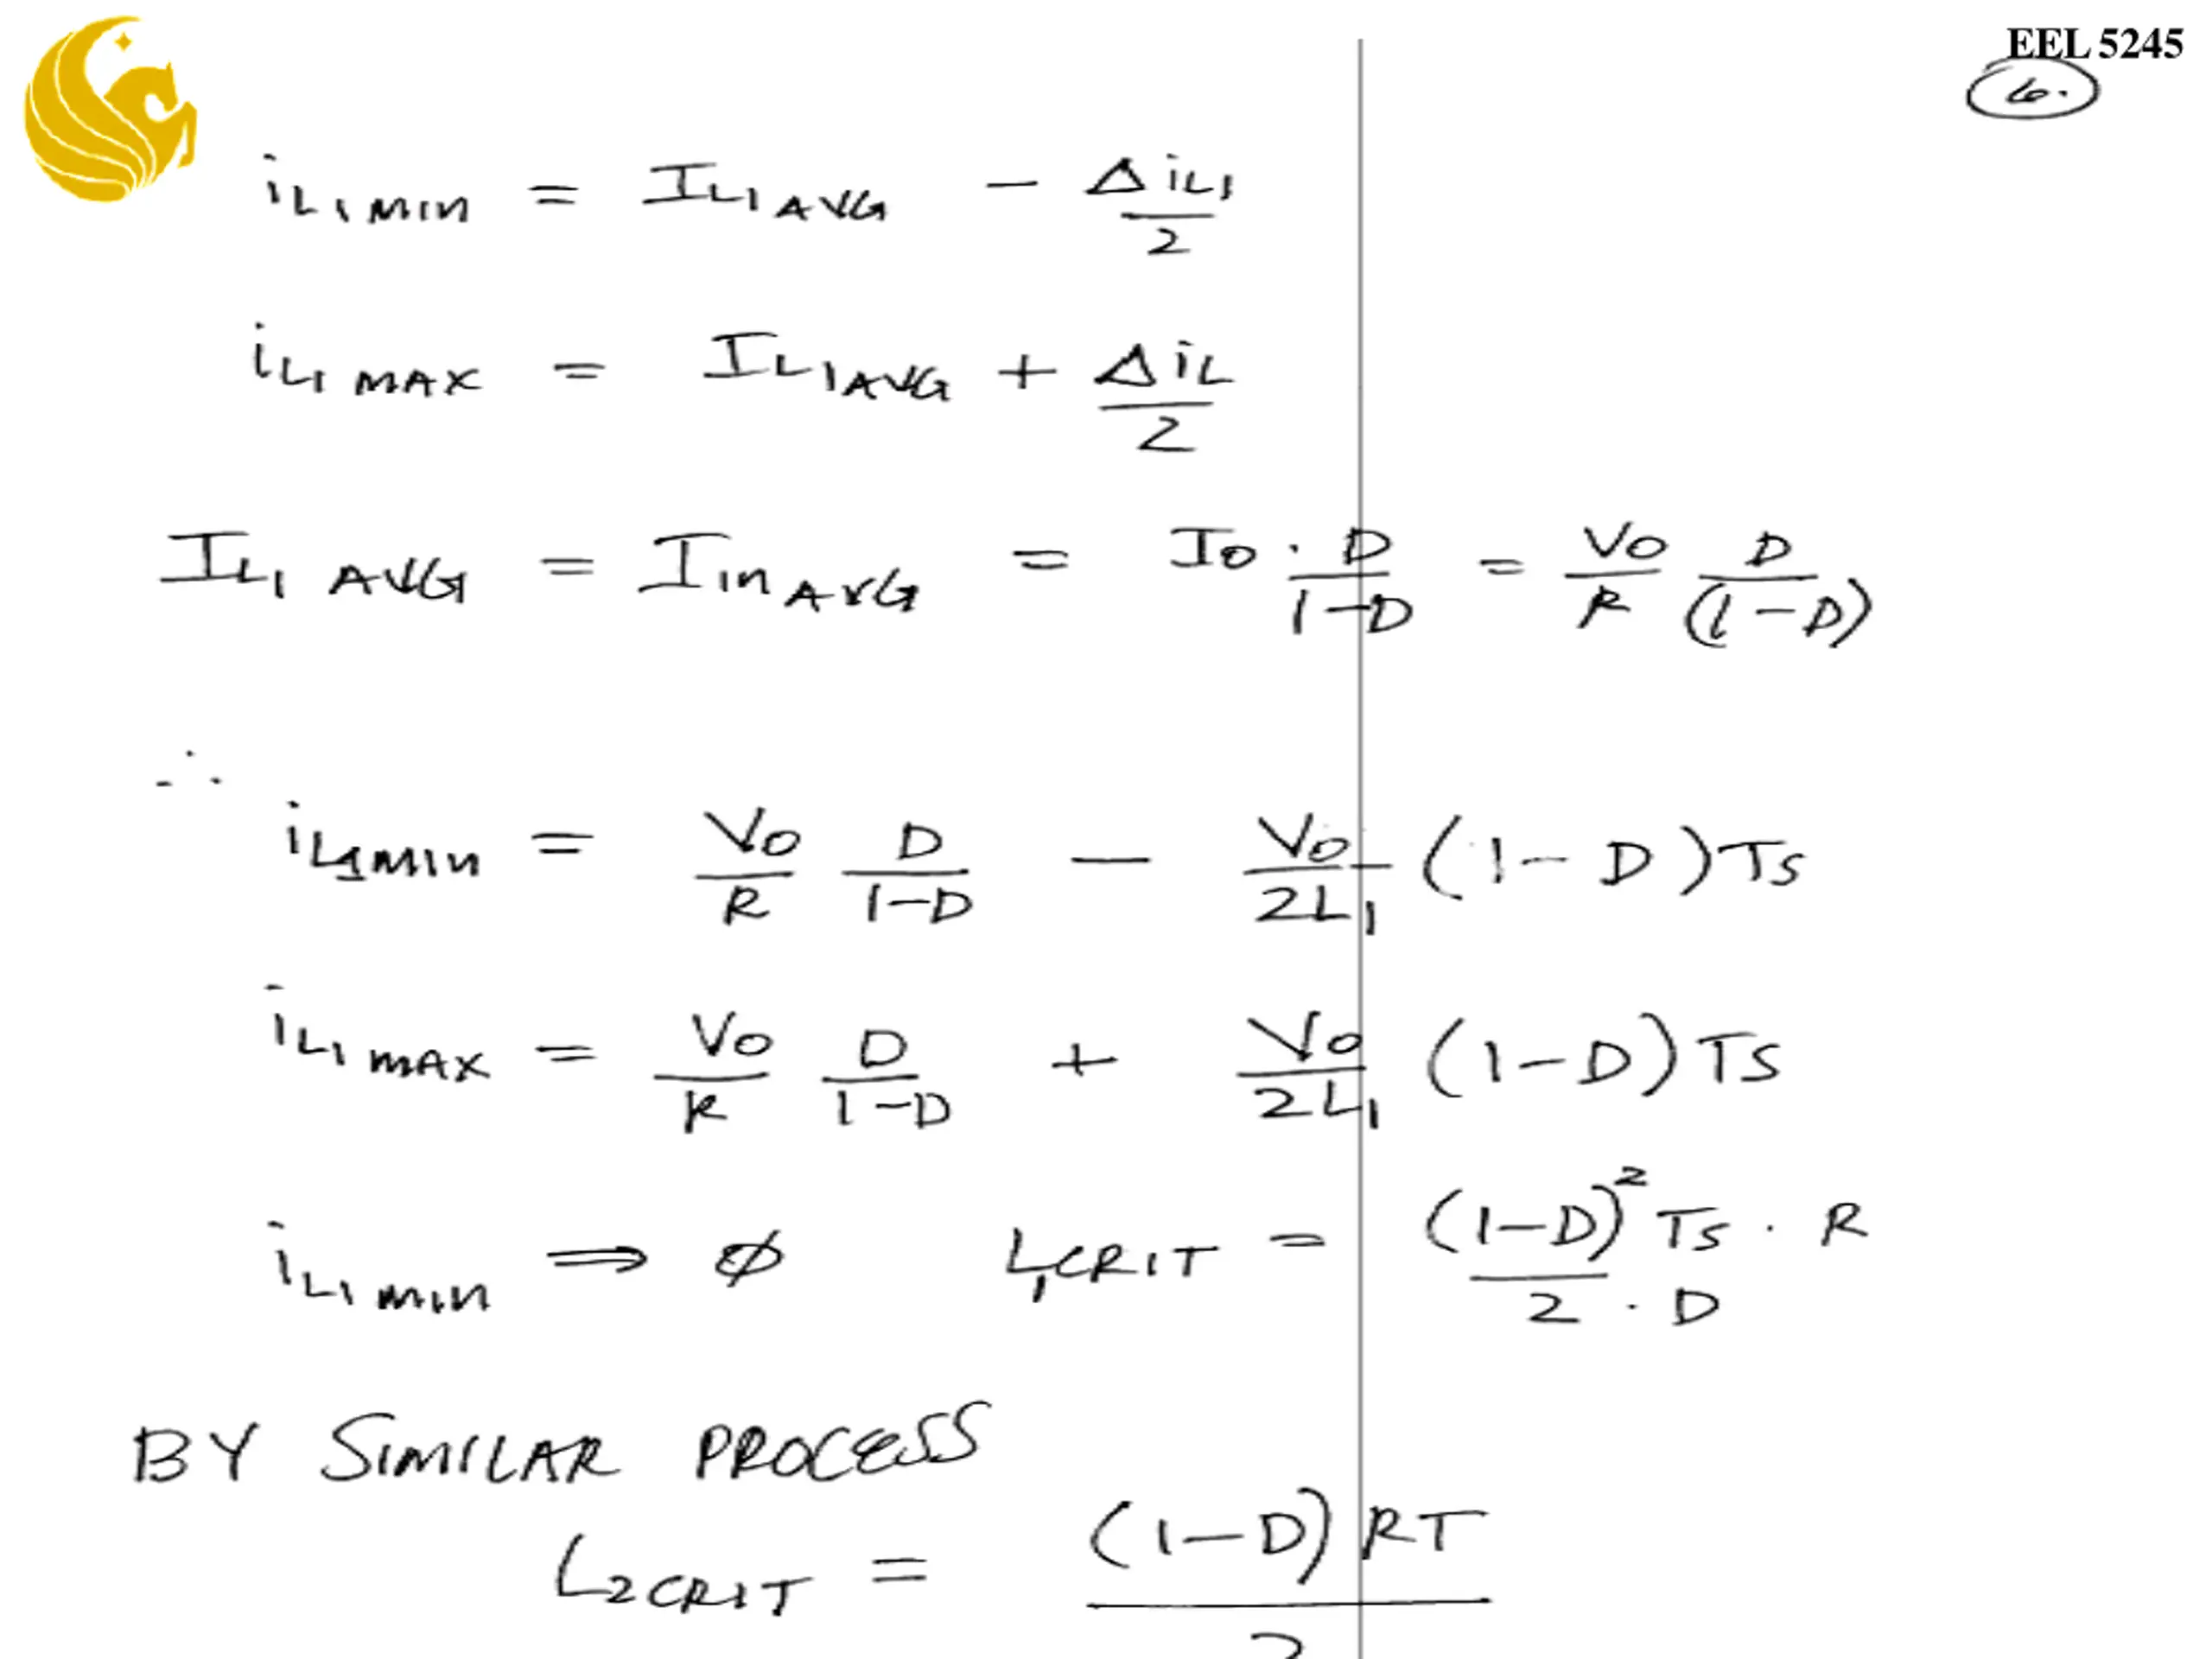 EEL 5245
6.
iL1 MIN = IL1 AVG − ΔiL1/2
iL1 MAX = IL1 AVG + ΔiL/2
IL1 AVG = Iin AVG = Io · D/(1−D) = Vo/R D/(1−D)
∴
iL1 MIN = Vo/R D/(1−D) − Vo/2L1 (1−D)Ts
iL1 MAX = Vo/R D/(1−D) + Vo/2L1 (1−D)Ts
iL1 MIN ⇒ ∅ L1CRIT = (1−D)² Ts · R / 2 · D
BY SIMILAR PROCESS
L2CRIT = (1−D) RT / 2